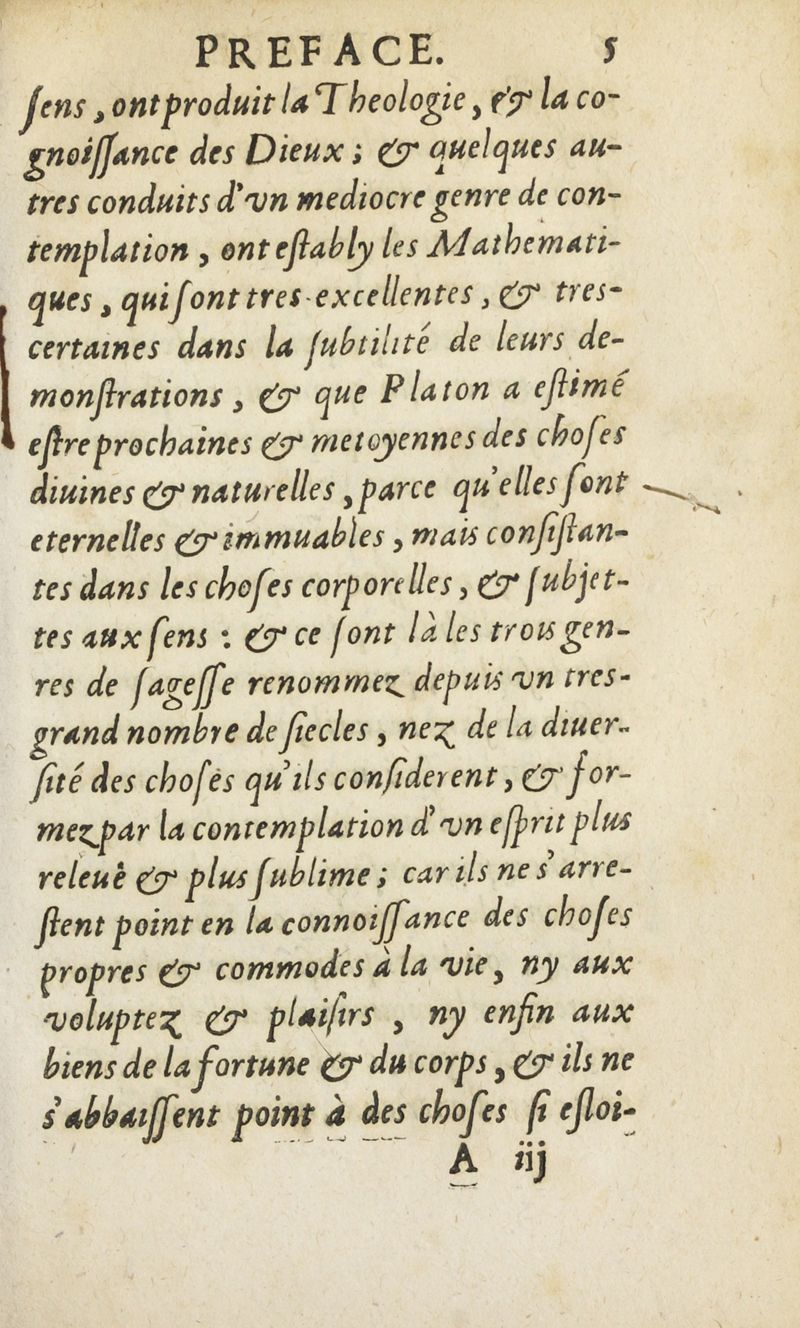 PREFACE. 5
ſens, ont produit la Theologie, & la co-
gnoiſſance des Dieux; & quelques au-
tres conduits d'vn mediocre genre de con-
templation, ont eſtably les Mathemati-
ques, qui ſont tres-excellentes, & tres-
certaines dans la ſubtilité de leurs de-
monſtrations, & que Platon a eſtimé
eſtre prochaines & metoyennes des choſes
diuines & naturelles, parce qu'elles ſont
eternelles & immuables, mais conſiſtan-
tes dans les choſes corporelles, & ſubjet-
tes aux ſens: & ce ſont là les trois gen-
res de ſageſſe renommez depuis vn tres-
grand nombre de ſiecles, nez de la diuer-
ſité des choſes qu'ils conſiderent, & for-
mez par la contemplation d'vn eſprit plus
releuè & plus ſublime; car ils ne s'arre-
ſtent point en la connoiſſance des choſes
propres & commodes à la vie, ny aux
voluptez & plaiſirs, ny enfin aux
biens de la fortune & du corps, & ils ne
s'abbaiſſent point à des choſes ſi eſloi-
A iij